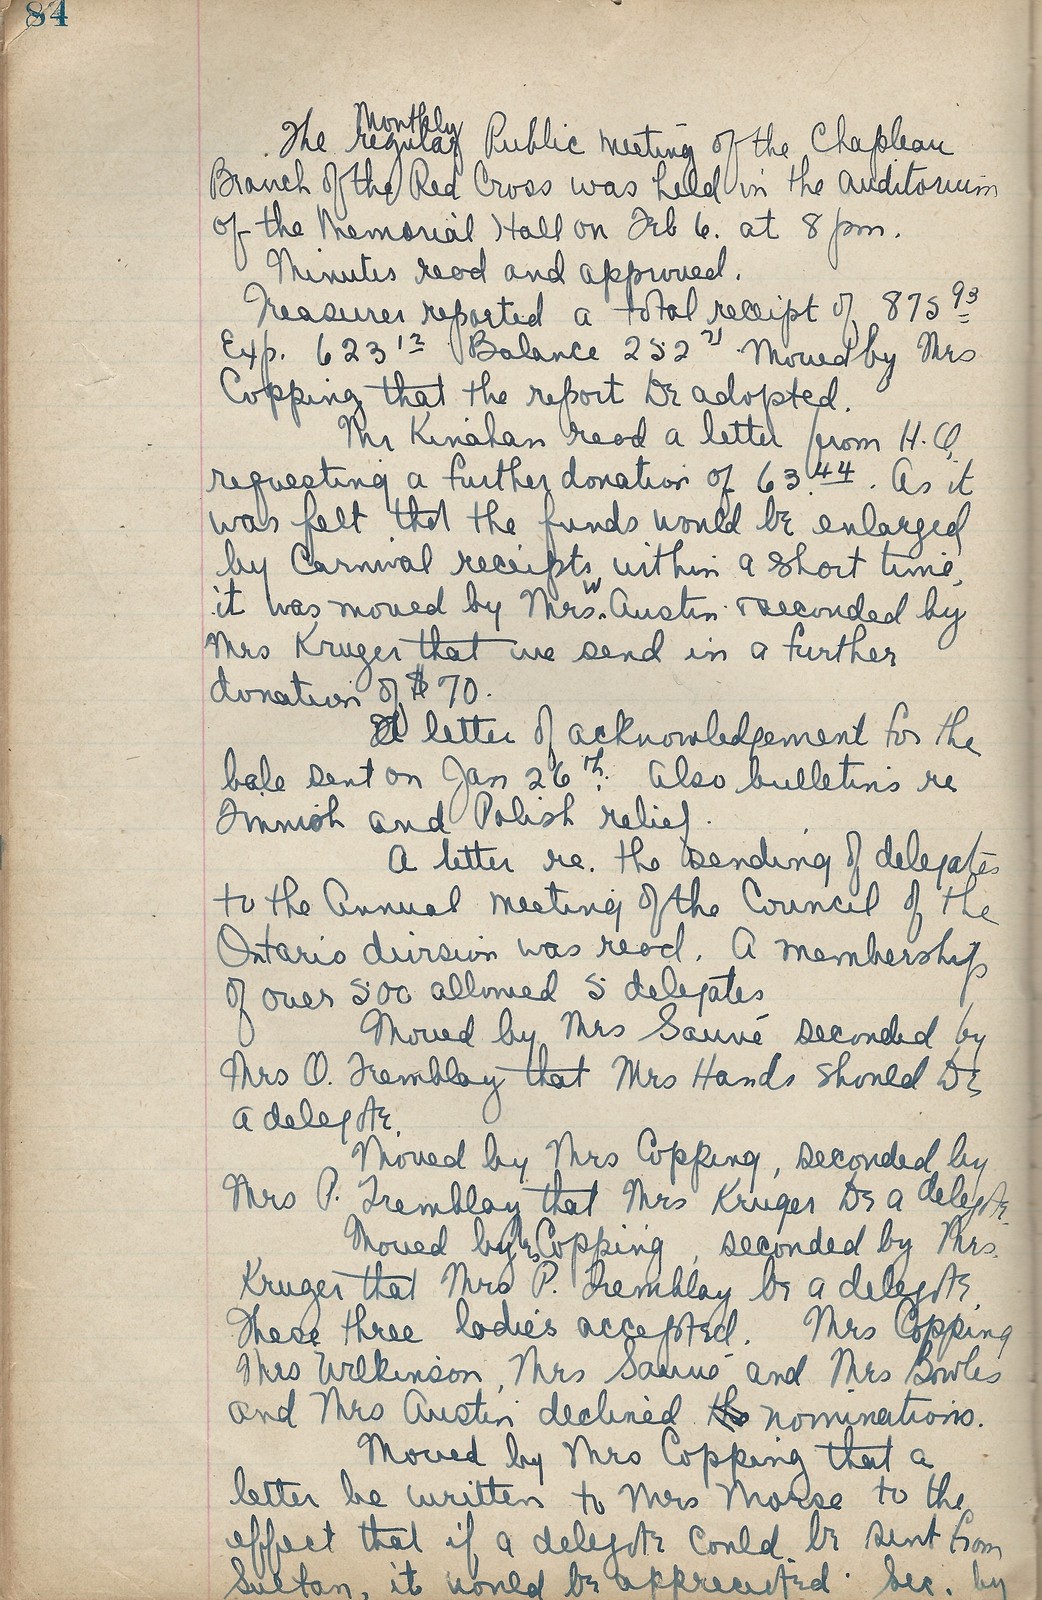 84
Monthly
The regular Public meeting of the Chapleau
Branch of the Red Cross was held in the auditorium
of the Memorial Hall on Feb 6. at 8 pm.
Minutes read and approved.
Treasurer reported a total receipt of 875 93
Exp. 623 12 Balance 252 21 Moved by Mrs
Copping that the report be adopted.
Mr Kinahan read a letter from H.Q.
requesting a further donation of 63.44. As it
was felt that the funds would be enlarged
by Carnival receipts within a short time,
it was moved by Mrs. W Austin seconded by
Mrs Kruger that we send in a further
donation of $70.
A letter of acknowledgement for the
bale sent on Jan 26th. Also bulletins re
Finnish and Polish relief.
A letter re. the sending of delegates
to the Annual meeting of the Council of the
Ontario division was read. A membership
of over 500 allowed 5 delegates
Moved by Mrs Sauvé seconded by
Mrs O. Tremblay that Mrs Hands should be
a delegate.
Moved by Mrs Copping, seconded by
Mrs P. Tremblay that Mrs Kruger be a delegate.
Moved by Mrs Copping, seconded by Mrs.
Kruger that Mrs P. Tremblay be a delegate.
These three ladies accepted. Mrs Copping
Mrs Wilkinson, Mrs Sauvé and Mrs Bowles
and Mrs Austin declined nominations.
Moved by Mrs Copping that a
letter be written to Mrs Morse to the
effect that if a delegate could be sent from
Sultan, it would be appreciated. Sec. by